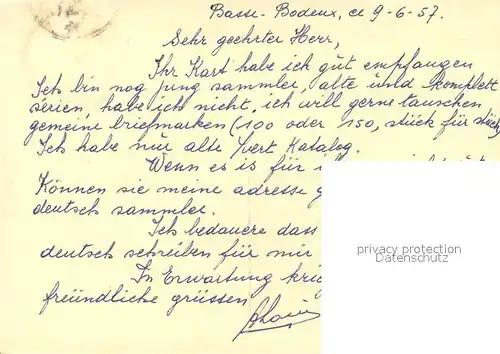 Basse-Bodeux, ce 9-6-57.
Sehr geehrter Herr,
Ihr Kart habe ich gut empfangen
Ich bin nog jung sammler, alte und komplett
serien, habe ich nicht, ich will gerne tauschen
gemeine briefmarken (100 oder 150, stück für stück)
Ich habe nur alte Yvert Katalog.
Wenn es is für
Können sie meine adresse
deutsch sammler.
Ich bedauere dass
deutsch schreiben für mir
In Erwartung
freündliche grüssen
privacy protection
Datenschutz